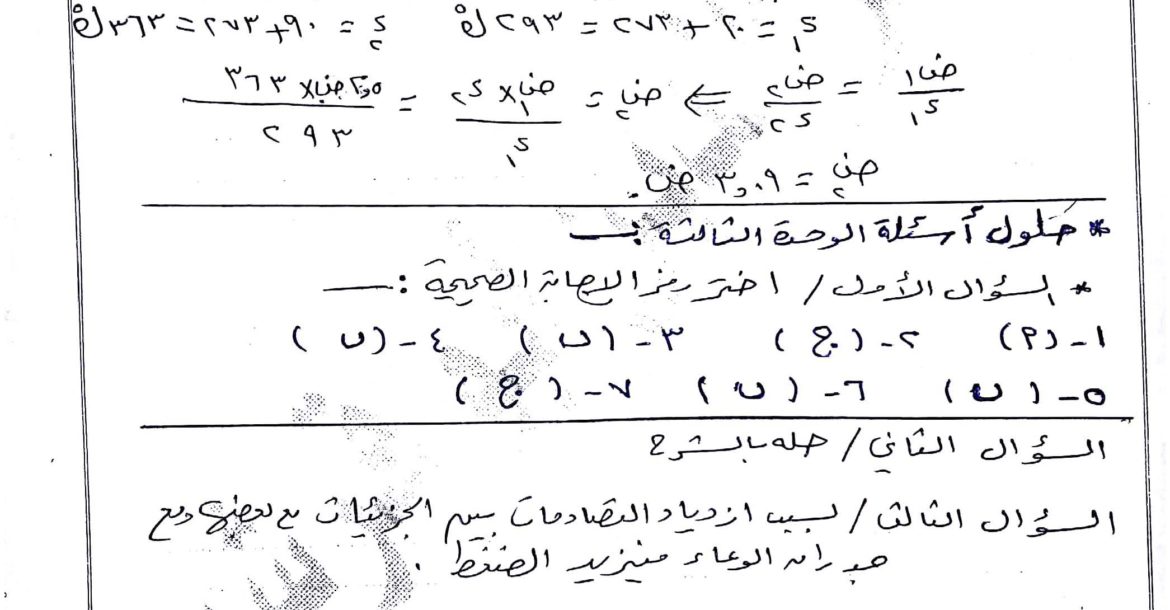 د١ = ٢٠ + ٢٧٣ = ٢٩٣ ك° د٢ = ٩٠ + ٢٧٣ = ٣٦٣ ك°
ض١/د١ = ض٢/د٢ ⇐ ض٢ = ض١ × د٢/د١ = ٢,٥ ض١ × ٣٦٣/٢٩٣
ض٢ = ٣,٠٩ ض١.
* حلول أسئلة الوحدة الثالثة :ـ
* السؤال الأول / اختر رمز الإجابة الصحيحة :ـ
١- (P) ٢- (ج) ٣- (ب) ٤- (ب)
٥- (ب) ٦- (ب) ٧- (ج)
السؤال الثاني / حله بالشرح
السؤال الثالث / بسبب ازدياد التصادمات بين الجزيئات مع بعضها ومع
جدران الوعاء فيزيد الضغط .